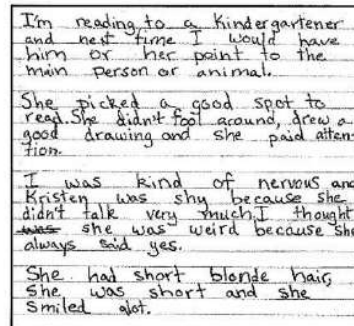 I'm reading to a kindergartener
and next time I would have
him or her point to the
main person or animal.
She picked a good spot to
read. She didn't fool around, drew a
good drawing and she paid atten-
tion.
I was kind of nervous and
Kristen was shy because she
didn't talk very much. I thought
was she was weird because she
always said yes.
She had short blonde hair,
She was short and she
smiled alot.